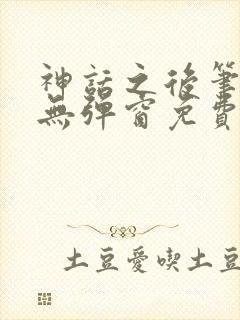 神話之後筆
無彈窗免費
土豆愛喫土豆